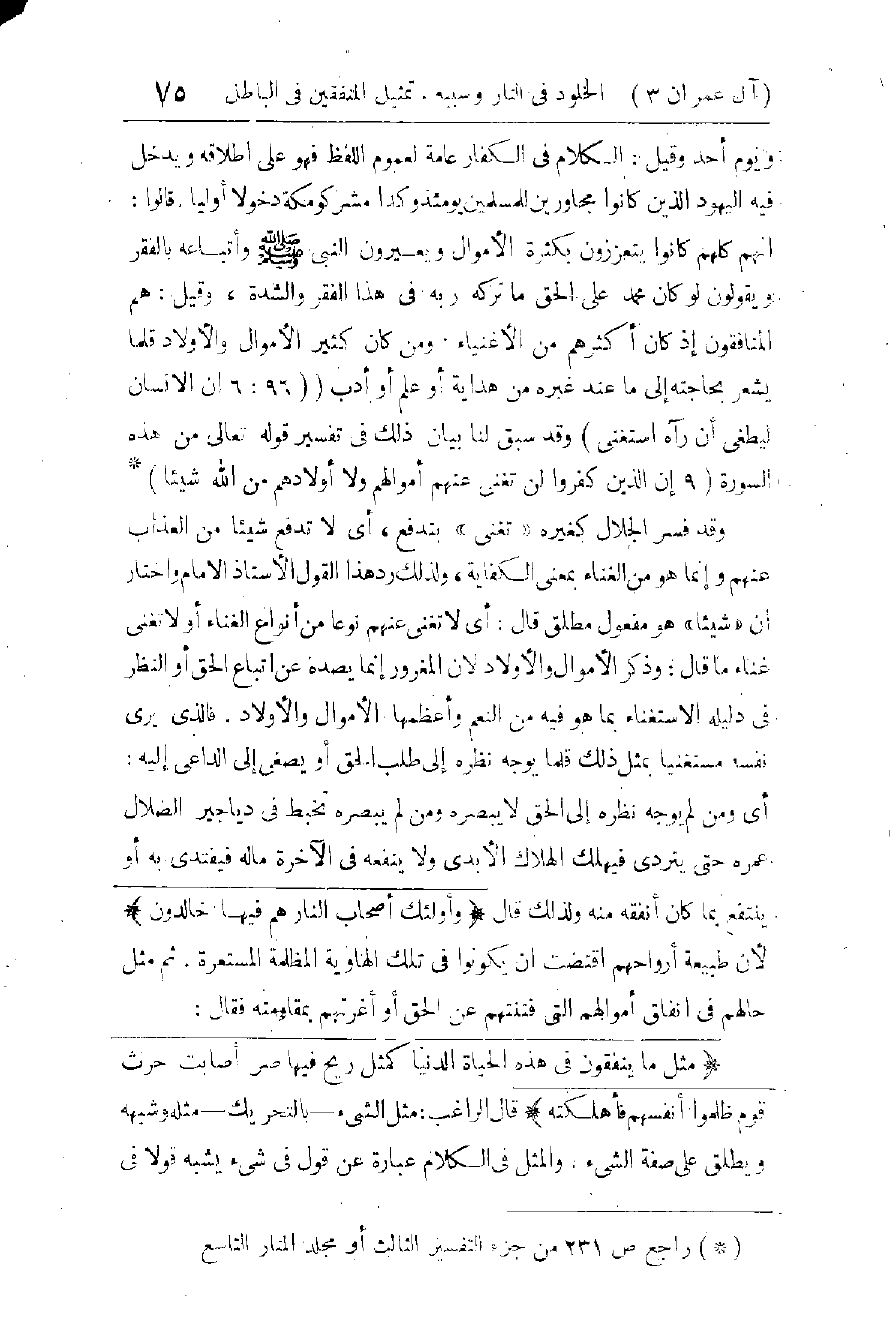 (آل عمران ٣) الخلود فى النار وسببه . تمثيل المنفقين فى الباطل ٧٥
ويوم أحد وقيل : الكلام فى الكفار عامة لعموم اللفظ فهو على اطلاقه ويدخل
فيه اليهود الذين كانوا مجاورين للمسلمين يومئذ وكذا مشركو مكة دخولا أوليا . قالوا :
انهم كلهم كانوا يتعززون بكثرة الأموال ويعيرون النبي ﷺ وأتباعه بالفقر
ويقولون لو كان محمد على الحق ما تركه ربه فى هذا الفقر والشدة ، وقيل : هم
المنافقون إذ كان أكثرهم من الأغنياء . ومن كان كثير الأموال والأولاد قلما
يشعر بحاجته إلى ما عند غيره من هداية أو علم أو أدب ( ( ٩٦ : ٦ ان الانسان
ليطغى أن رآه استغنى ) وقد سبق لنا بيان ذلك فى تفسير قوله تعالى من هذه
السورة ( ٩ إن الذين كفروا لن تغنى عنهم أموالهم ولا أولادهم من الله شيئا ) *
وقد فسر الجلال كغيره « تغنى » بتدفع ، أى لا تدفع شيئا من العذاب
عنهم وإنما هو من الغناء بمعنى الكفاية ، ولذلك رد هذا القول الأستاذ الامام واختار
ان «شيئا» هو مفعول مطلق قال : أى لا تغنى عنهم نوعا من أنواع الغناء أو لا تغنى
غناء ما قال : وذكر الأموال والأولاد لان المغرور إنما يصده عن اتباع الحق أو النظر
فى دليله الاستغناء بما هو فيه من النعم وأعظمها الأموال والأولاد . فالذى يرى
نفسه مستغنيا بمثل ذلك قلما يوجه نظره إلى طلب الحق أو يصغى إلى الداعى إليه :
أى ومن لم يوجه نظره إلى الحق لا يبصره ومن لم يبصره تخبط فى دياجير الضلال
عمره حتى يتردى فيهلك الهلاك الأبدى ولا ينفعه فى الآخرة ماله فيفتدى به أو
ينتفع بما كان أنفقه منه ولذلك قال ﴿ وأولئك أصحاب النار هم فيها خالدون ﴾
لأن طبيعة أرواحهم اقتضت ان يكونوا فى تلك الهاوية المظلمة المستعرة . ثم مثل
حالهم فى انفاق أموالهم التى فتنتهم عن الحق أو أغرتهم بمقاومته فقال :
﴿ مثل ما ينفقون فى هذه الحياة الدنيا كمثل ريح فيها صر أصابت حرث
قوم ظلموا أنفسهم فأهلكته ﴾ قال الراغب : مثل الشىء — بالتحريك — مثله وشبهه
ويطلق على صفة الشىء . والمثل فى الكلام عبارة عن قول فى شىء يشبه قولا فى
( * ) راجع ص ٢٣١ من جزء التفسير الثالث أو مجلد المنار التاسع